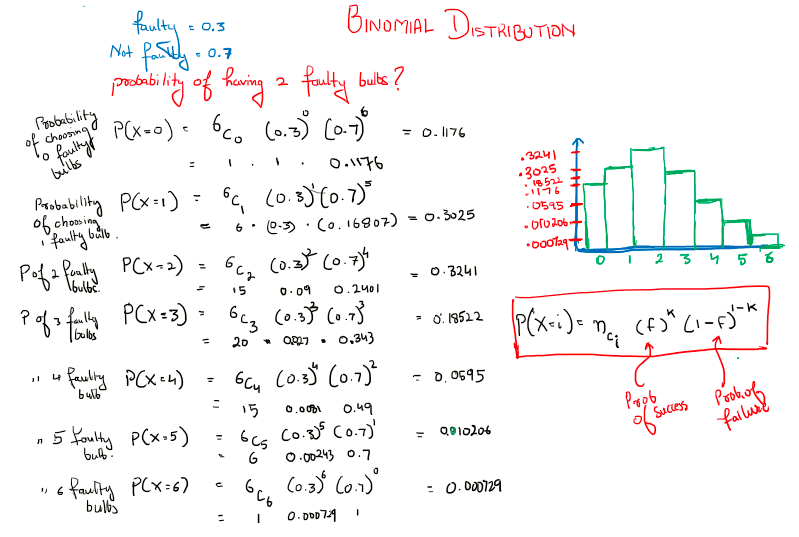 BINOMIAL DISTRIBUTION
faulty = 0.3
Not faulty = 0.7
probability of having 2 faulty bulbs?
Probability of choosing 0 faulty bulbs P(X=0) = 6C0 (0.3)^0 (0.7)^6 = 0.1176
= 1 . 1 . 0.1176
Probability of choosing 1 faulty bulb. P(X=1) = 6C1 (0.3)^1 (0.7)^5
= 6 . (0.3) . (0.16807) = 0.3025
P of 2 faulty bulbs. P(X=2) = 6C2 (0.3)^2 (0.7)^4 = 0.3241
= 15 0.09 0.2401
P of 3 faulty bulbs P(X=3) = 6C3 (0.3)^3 (0.7)^3 = 0.18522
= 20 * 0.027 * 0.343
" 4 faulty bulb P(X=4) = 6C4 (0.3)^4 (0.7)^2 = 0.0595
= 15 0.0081 0.49
" 5 faulty bulb. P(X=5) = 6C5 (0.3)^5 (0.7)^1 = 0.010206
= 6 0.00243 0.7
" 6 faulty bulbs P(X=6) = 6C6 (0.3)^6 (0.7)^0 = 0.000729
= 1 0.000729 1
.3241
.3025
.18522
.1176
.0595
.010206
.000729
0 1 2 3 4 5 6
P(X=i) = nCi (f)^K (1-f)^1-K
Prob of success
Prob of failure